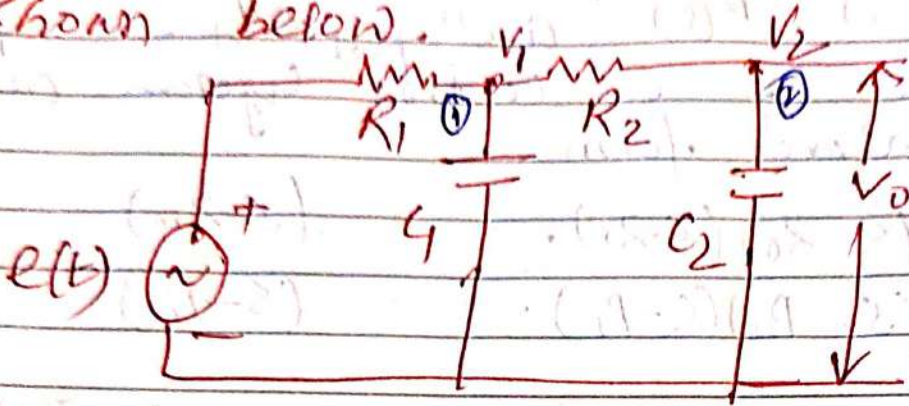 shown below.
V1 V2
R1 ① R2 ②
+
e(t) C1 C2 Vo
-